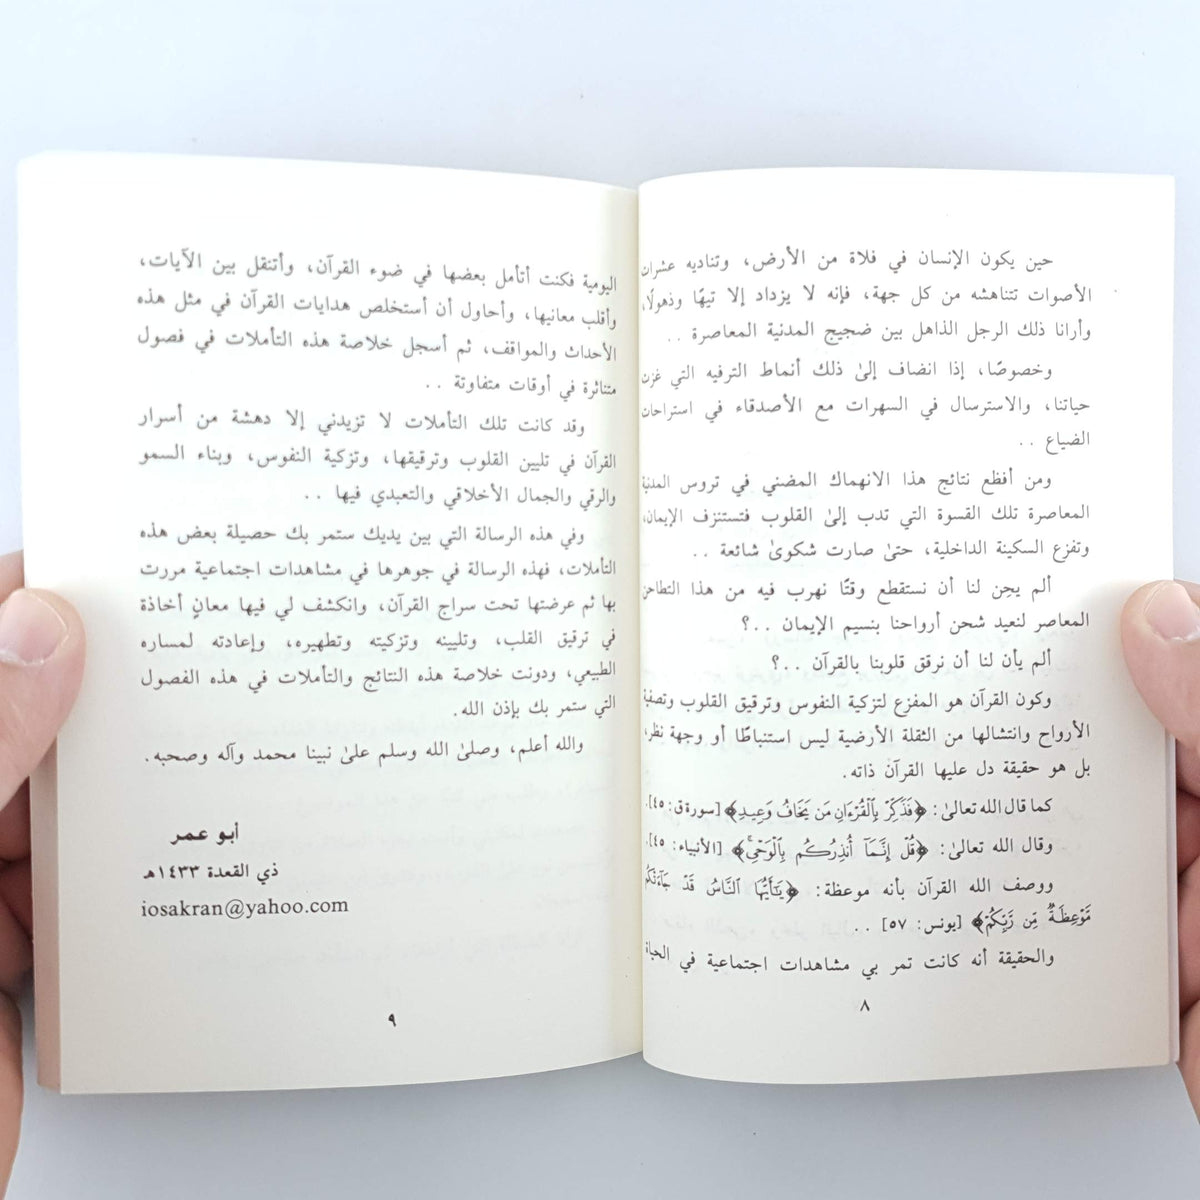 حين يكون الإنسان في فلاة من الأرض، وتناديه عشرات
الأصوات تتناهشه من كل جهة، فإنه لا يزداد إلا تيهًا وذهولًا،
وأرانا ذلك الرجل الذاهل بين ضجيج المدنية المعاصرة . .
وخصوصًا، إذا انضاف إلىٰ ذلك أنماط الترفيه التي غزت
حياتنا، والاسترسال في السهرات مع الأصدقاء في استراحات
الضياع . .
ومن أفظع نتائج هذا الانهماك المضني في تروس المدنية
المعاصرة تلك القسوة التي تدب إلىٰ القلوب فتستنزف الإيمان،
وتفزع السكينة الداخلية، حتىٰ صارت شكوىٰ شائعة . .
ألم يحِن لنا أن نستقطع وقتًا نهرب فيه من هذا التطاحن
المعاصر لنعيد شحن أرواحنا بنسيم الإيمان . .؟
ألم يأن لنا أن نرقق قلوبنا بالقرآن . .؟
وكون القرآن هو المفزع لتزكية النفوس وترقيق القلوب وتصفية
الأرواح وانتشالها من الثقلة الأرضية ليس استنباطًا أو وجهة نظر،
بل هو حقيقة دل عليها القرآن ذاته.
كما قال الله تعالىٰ: ﴿فَذَكِّرْ بِٱلْقُرْءَانِ مَن يَخَافُ وَعِيدِ﴾ [سورة ق: ٤٥].
وقال الله تعالىٰ: ﴿قُلْ إِنَّمَآ أُنذِرُكُم بِٱلْوَحْيِ ۚ﴾ [الأنبياء: ٤٥].
ووصف الله القرآن بأنه موعظة: ﴿يَـٰٓأَيُّهَا ٱلنَّاسُ قَدْ جَآءَتْكُم
مَّوْعِظَةٌ مِّن رَّبِّكُمْ﴾ [يونس: ٥٧] . .
والحقيقة أنه كانت تمر بي مشاهدات اجتماعية في الحياة
٨
اليومية فكنت أتأمل بعضها في ضوء القرآن، وأتنقل بين الآيات،
وأقلب معانيها، وأحاول أن أستخلص هدايات القرآن في مثل هذه
الأحداث والمواقف، ثم أسجل خلاصة هذه التأملات في فصول
متناثرة في أوقات متفاوتة . .
وقد كانت تلك التأملات لا تزيدني إلا دهشة من أسرار
القرآن في تليين القلوب وترقيقها، وتزكية النفوس، وبناء السمو
والرقي والجمال الأخلاقي والتعبدي فيها . .
وفي هذه الرسالة التي بين يديك ستمر بك حصيلة بعض هذه
التأملات، فهذه الرسالة في جوهرها في مشاهدات اجتماعية مررت
بها ثم عرضتها تحت سراج القرآن، وانكشف لي فيها معانٍ أخاذة
في ترقيق القلب، وتليينه وتزكيته وتطهيره، وإعادته لمساره
الطبيعي، ودونت خلاصة هذه النتائج والتأملات في هذه الفصول
التي ستمر بك بإذن الله.
والله أعلم، وصلىٰ الله وسلم علىٰ نبينا محمد وآله وصحبه.
أبو عمر
ذي القعدة ١٤٣٣هـ
iosakran@yahoo.com
٩